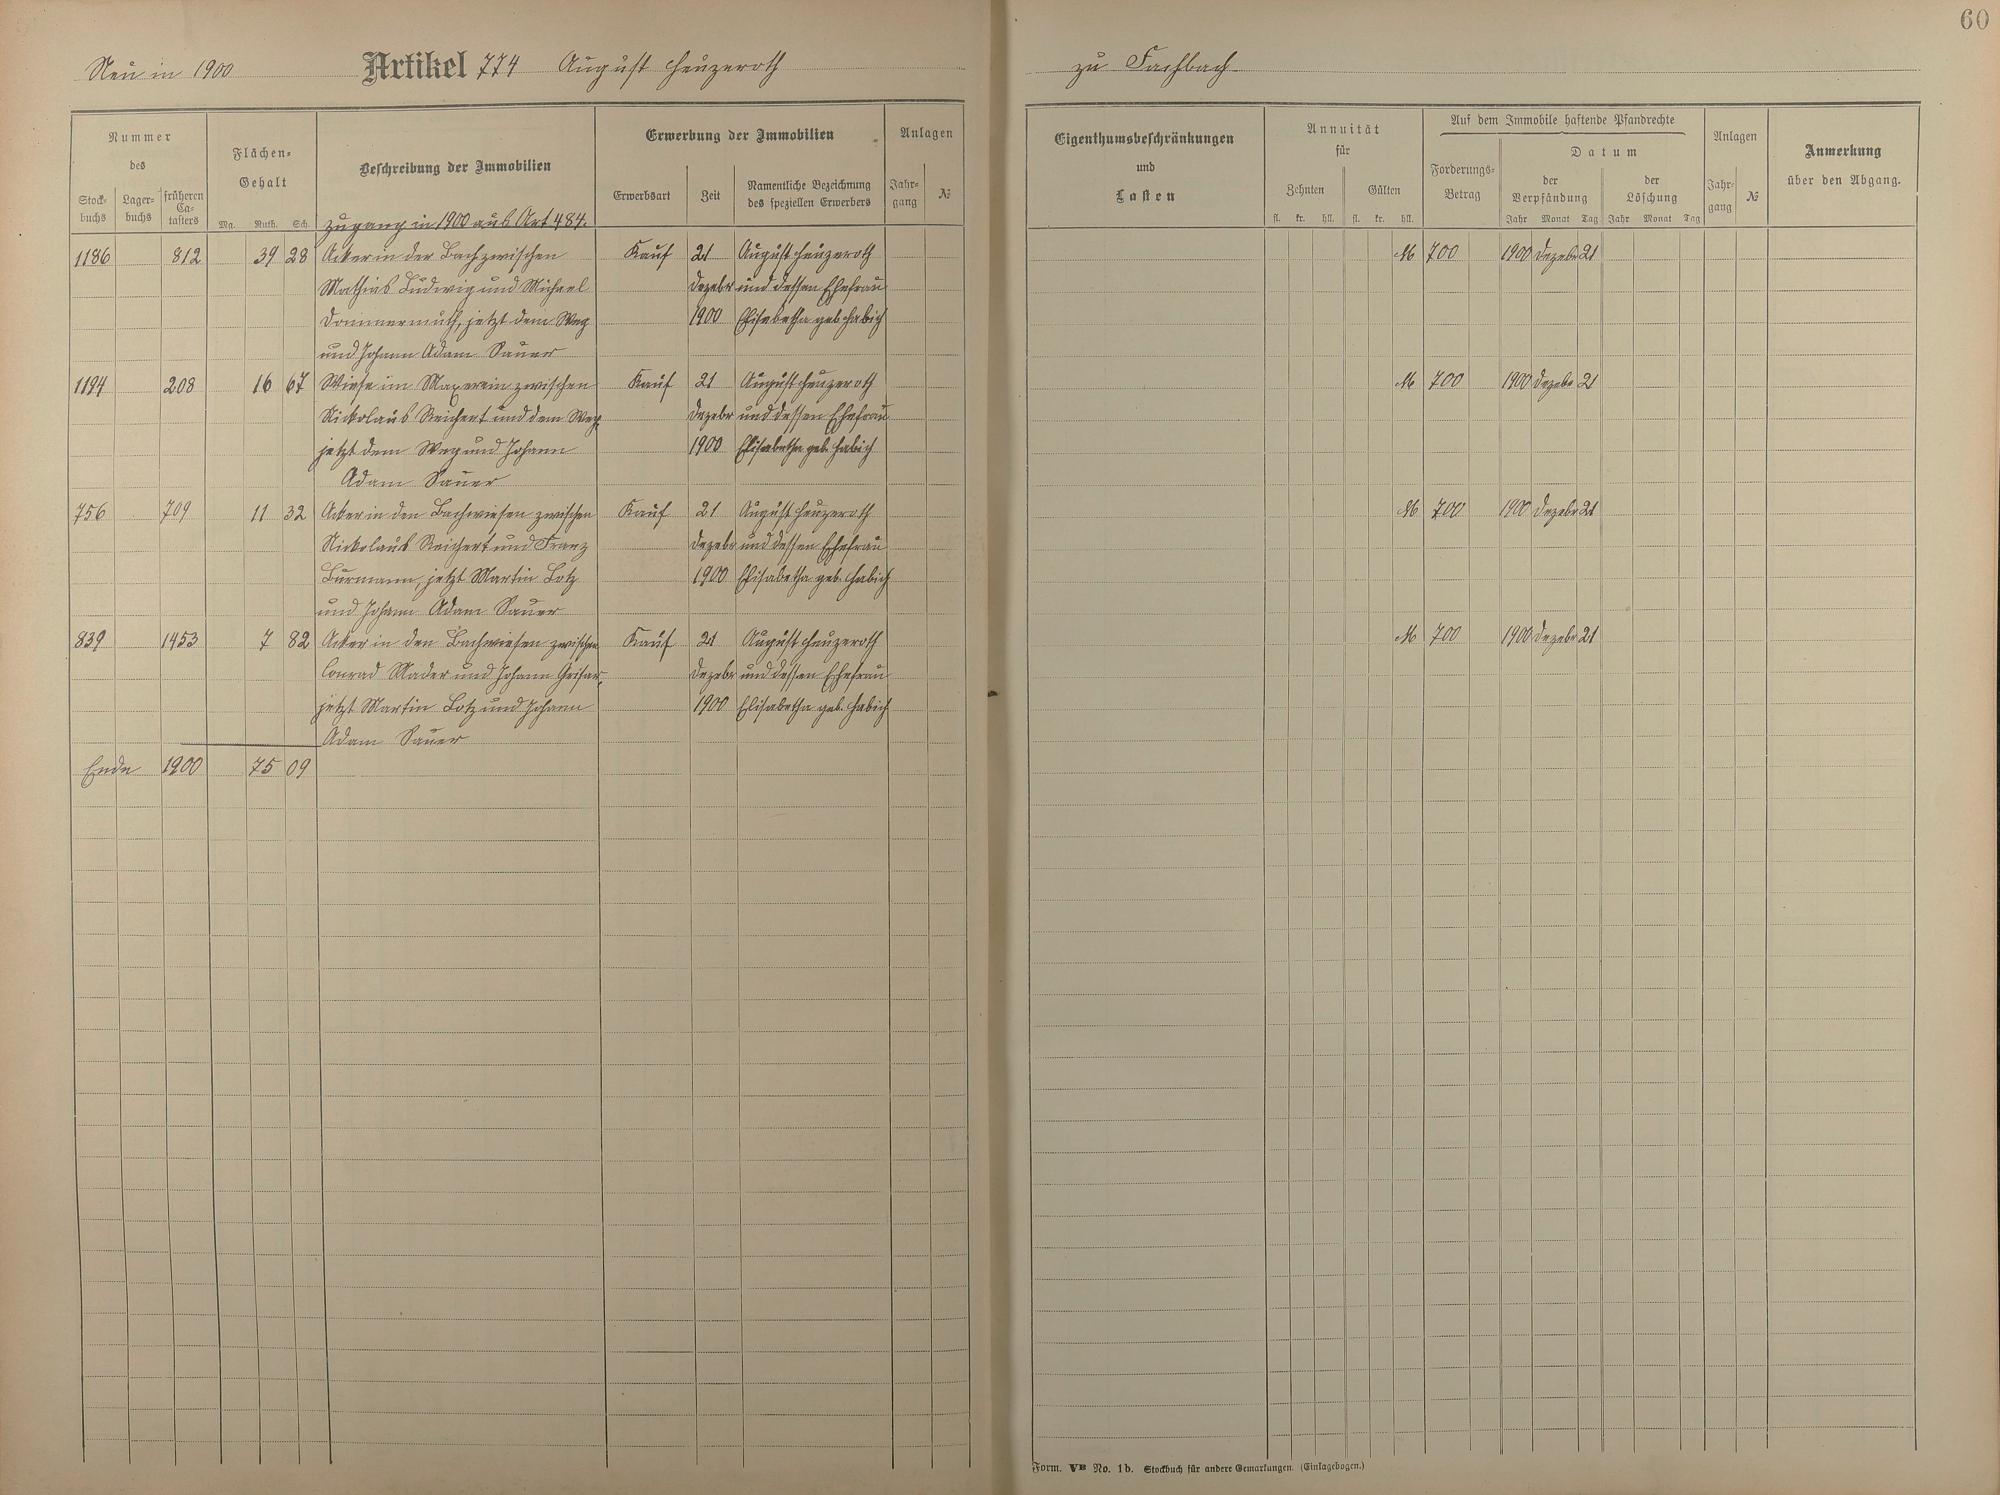 60
Neu in 1900 Artikel 774 August Heuzeroth zu Fachbach
Nummer
des
Stock-
buchs
Lager-
buchs
früheren
Ca-
tasters
Flächen-
Gehalt
Mg. Ruth. Sch.
Beschreibung der Immobilien
Erwerbung der Immobilien
Erwerbsart
Zeit
Namentliche Bezeichnung
des speziellen Erwerbers
Anlagen
Jahr-
gang
№
Eigenthumsbeschränkungen
und
Lasten
Annuität
für
Zehnten Gülten
fl. kr. hll. fl. kr. hll.
Auf dem Immobile haftende Pfandrechte
Forderungs-
Betrag
Datum
der
Verpfändung
der
Löschung
Jahr Monat Tag Jahr Monat Tag
Anlagen
Jahr-
gang
№
Anmerkung
über den Abgang.
Zugang in 1900 aus Art 484.
1186 812 39 28 Acker in der Bach zwischen Kauf 21 August Heuzeroth M 700 1900 Dezebr 21
Mathias Ludwig und Michael Dezebr und dessen Ehefrau
Dommermuth, jetzt dem Weg 1900 Elisabetha geb. Habich
und Johann Adam Sauer
1194 208 16 67 Wiese im zwischen Kauf 21 August Heuzeroth M 700 1900 Dezebr 21
Nickolaus Reichert und dem Weg, Dezebr und dessen Ehefrau
jetzt dem Weg und Johann 1900 Elisabetha geb. Habich
Adam Sauer
756 709 11 32 Acker in den Bachwiesen zwischen Kauf 21 August Heuzeroth M 700 1900 Dezebr 21
Nickolaus Reichert und Franz Dezebr und dessen Ehefrau
Burmann, jetzt Martin Lotz 1900 Elisabetha geb. Habich
und Johann Adam Sauer
839 1453 7 82 Acker in den Bachwiesen zwischen Kauf 21 August Heuzeroth M 700 1900 Dezebr 21
Conrad Mader und Johann Grisar, Dezebr und dessen Ehefrau
jetzt Martin Lotz und Johann 1900 Elisabetha geb. Habich
Adam Sauer
Ende 1900 75 09
Form. VB No. 1b. Stockbuch für andere Gemarkungen. (Einlagebogen.)